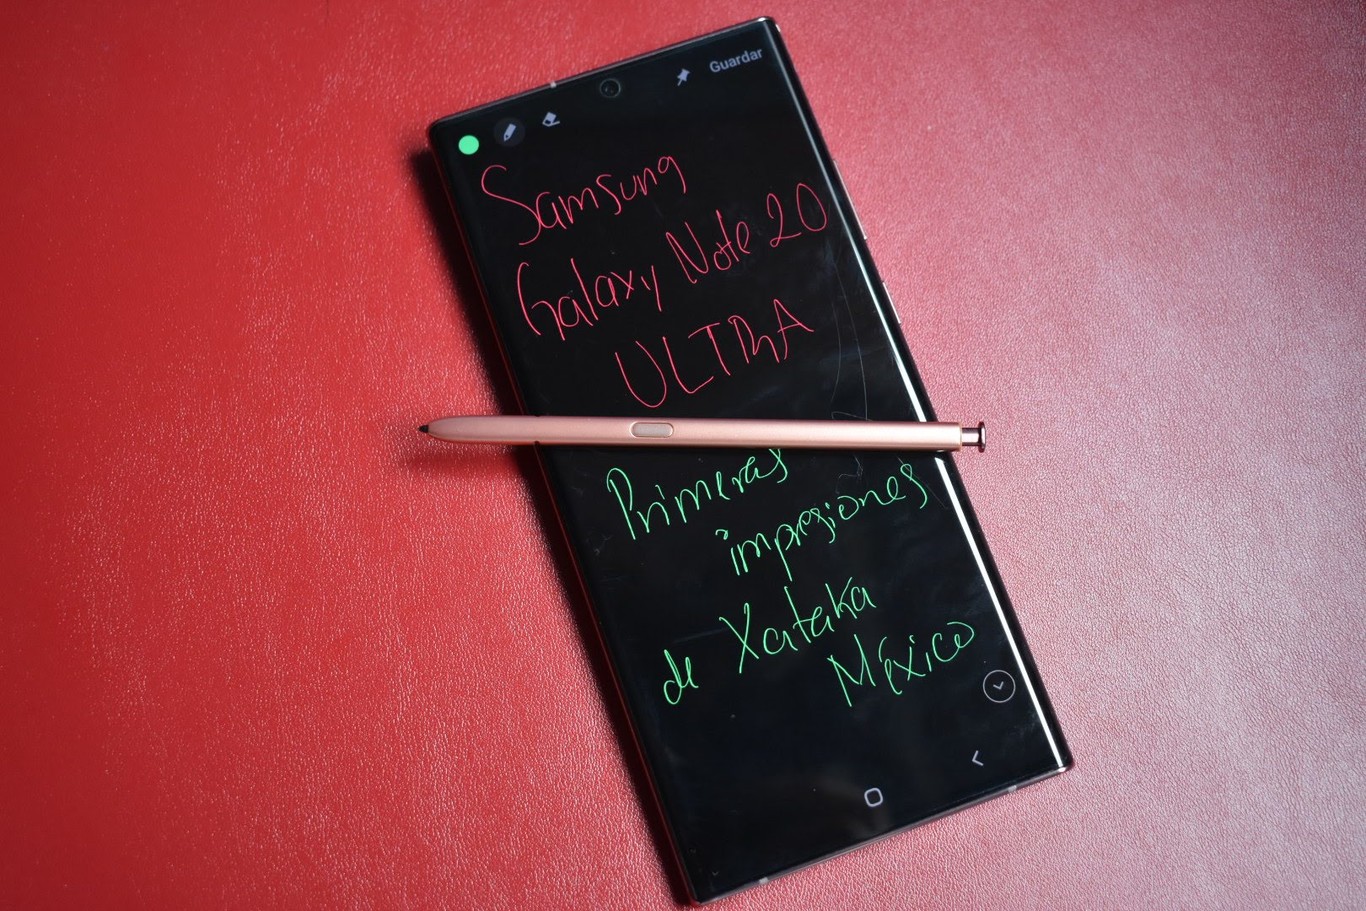 Guardar
Samsung
Galaxy Note 20
ULTRA
Primeras
impresiones
de Xataka
México